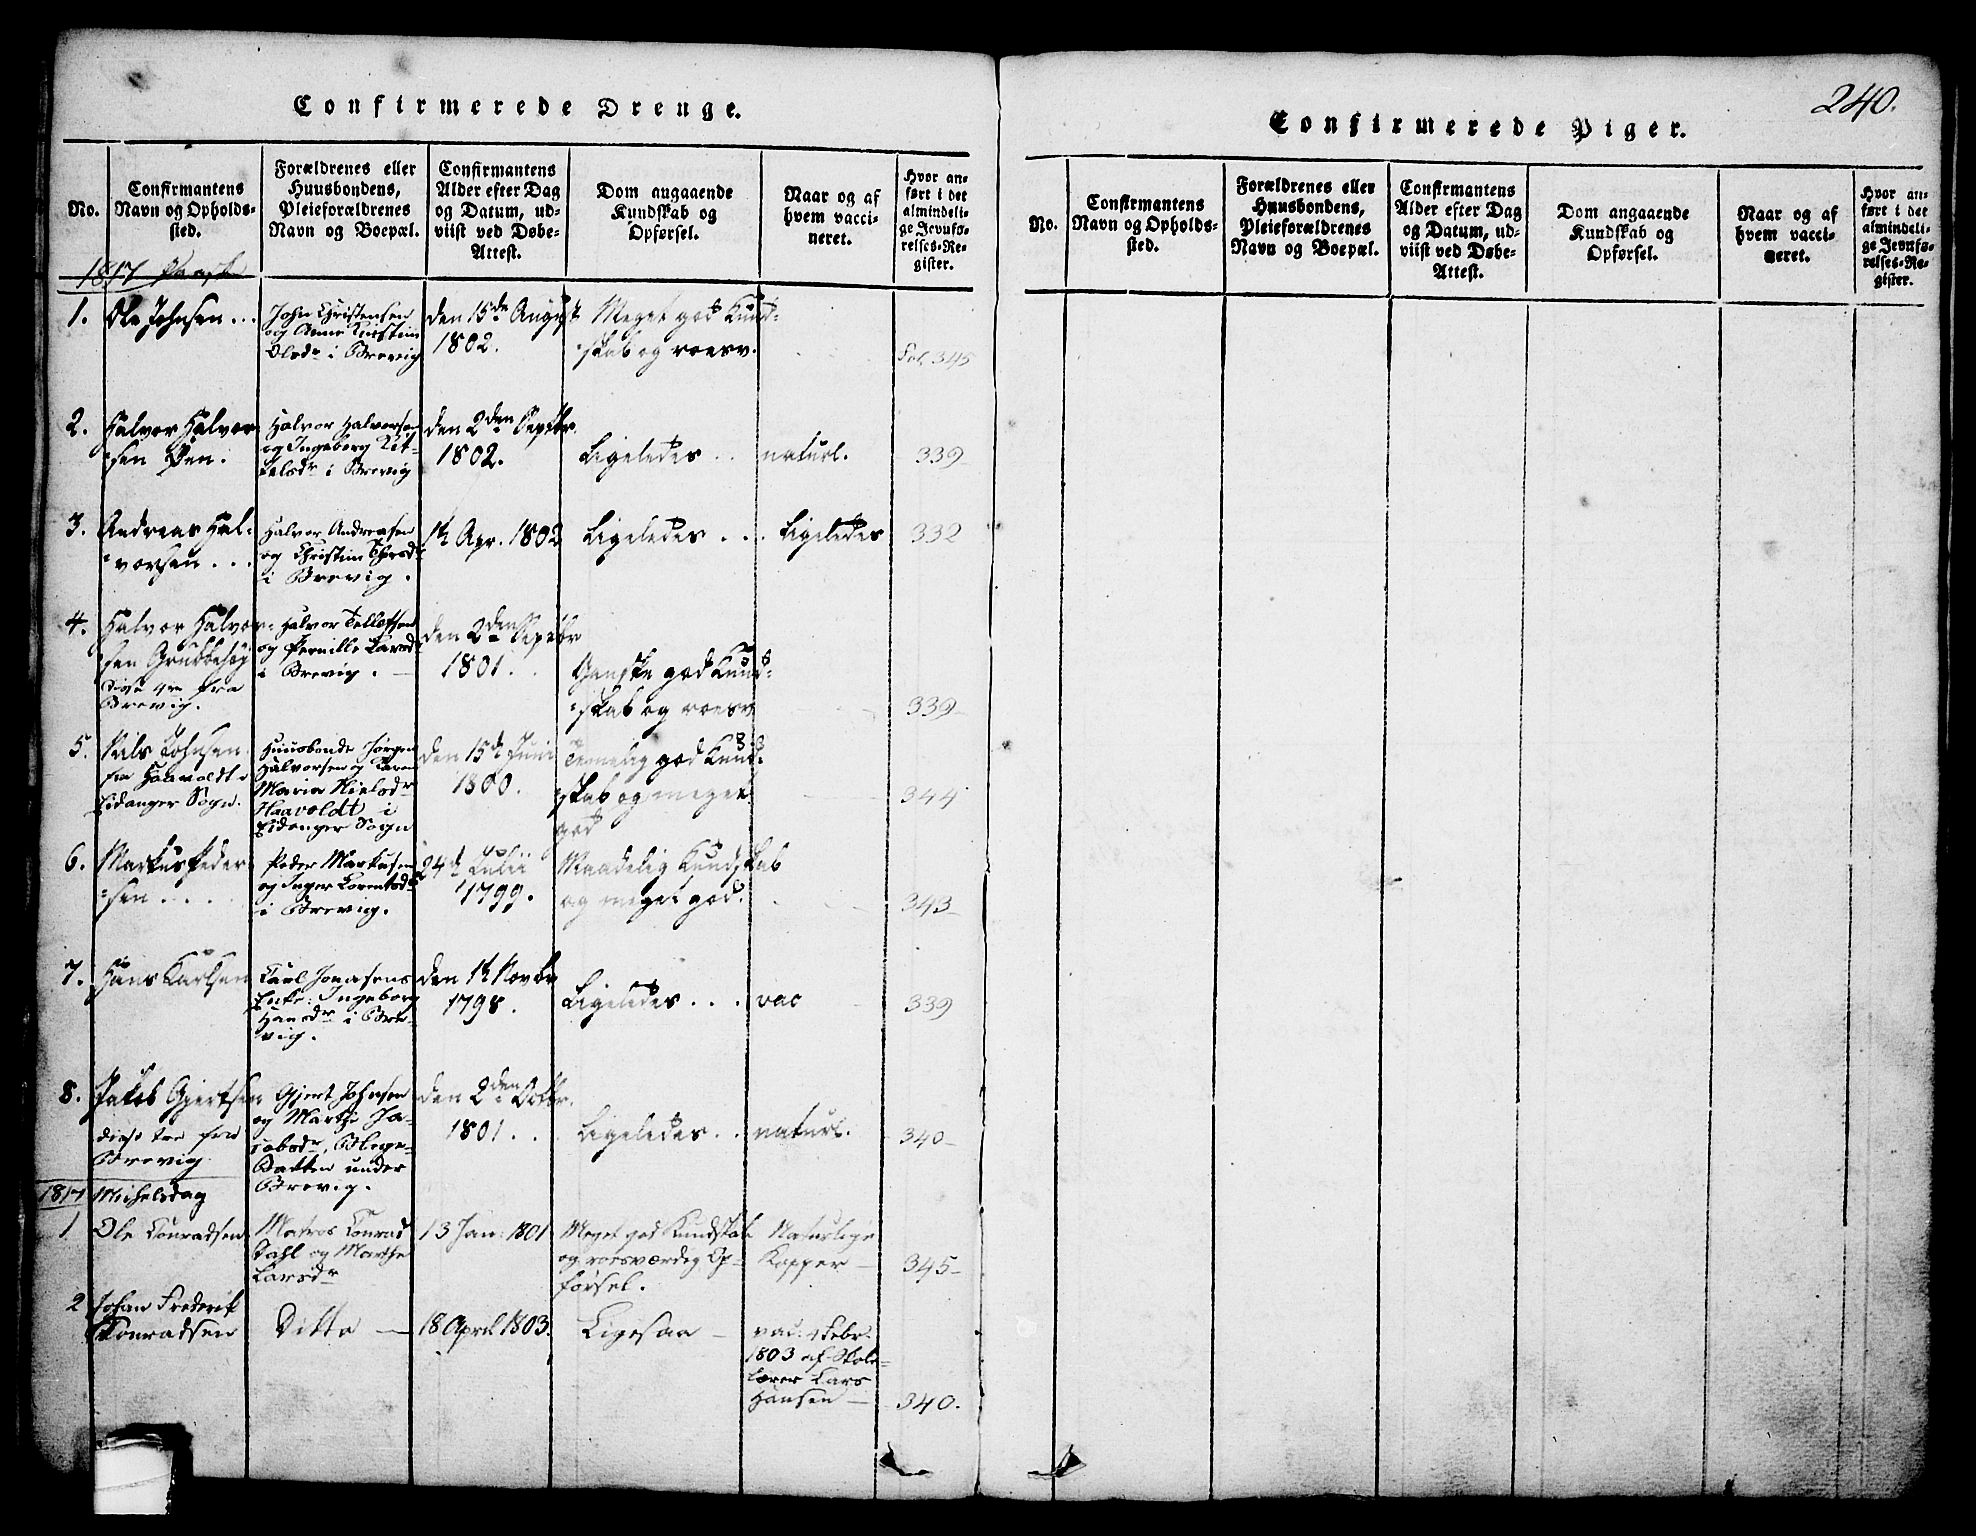 Confirmerede Drenge.
No.
Confirmantens
Navn og Opholds-
sted.
Forældrenes eller
Huusbondens,
Pleieforældrenes
Navn og Boepæl.
Confirmantens
Alder efter Dag
og Datum, ud-
viist ved Døbe-
Attest.
Dom angaaende
Kundskab og
Opførsel.
Naar og af
hvem vacci-
neret.
Hvor an-
ført i det
almindeli-
ge Jevnfø-
relses-Re-
gister.
1817 Paaske
1.
Ole Johnsen ...
John Christensen
og Anne Kirstine
Olsdr i Brevig
den 15de August
1802.
Meget god Kund-
skab og roesv.
Fol. 345
2.
Halvor Halvor-
sen Øen.
Halvor Halvorsen
og Ingeborg Kit-
telsdr i Brevig
den 2den Septbr
1802.
Ligeledes ..
naturl.
339
3.
Andreas Hal-
vorsen ...
Halvor Andreasen
og Christine Thorsdr
i Brevig.
1te Apr. 1802
Ligeledes ...
Ligeledes
332
4.
Halvor Halvor-
sen Grubbehøj
disse 4re fra
Brevig.
Halvor Tellefsen
og Pernille Larsdr
i Brevig.
den 2den Septbr
1801.
Ganske god Kund-
skab og roesv
339
5.
Nils Johnsen
fra Haavoldt
Eidanger Sogn.
Huusbonde Jørgen
Halvorsen og Karen
Maria Nielsdr
Haavoldt i
Eidanger Sogn
den 15de Juni
1800.
Temelig god Kund-
skab og meget
god
344
6.
Markus Peder-
sen ...
Peder Markusen
og Inger Lorentsdr
i Brevig.
24de Julii
1799.
Maadelig Kundskab
og meget god.
343
7.
Hans Karlsen
Carl Jonasens
Enke: Ingeborg
Hansdr i Bre-
vig.
den 1te Novbr
1798.
Ligeledes ...
vac
339
8.
Jakob Gjertsen
disse tre fra
Brevig
Gjert Johnsen
og Marthe Ja-
cobsdr, Blege-
Bakken under
Brevig.
den 2den Octbr.
1801 ..
Ligeledes ..
naturl.
340
1817 Michelsdag
1
Ole Conradsen
Matros Conrad
Dahl og Marthe
Larsdr
13 Jan: 1801
Meget god Kundskab
og roesværdig Op-
førsel.
Naturlige
Kopper
345
2
Johan Frederik
Konradsen
Ditto
18 April 1803.
Ligesaa
vac: 4 Febr.
1803 af Skole-
lærer Lars
Hansen
340.
240.
Confirmerede Piger.
No.
Confirmantens
Navn og Opholds-
sted.
Forældrenes eller
Huusbondens,
Pleieforældrenes
Navn og Boepæl.
Confirmantens
Alder efter Dag
og Datum, ud-
viist ved Døbe-
Attest.
Dom angaaende
Kundskab og
Opførsel.
Naar og af
hvem vacci-
neret.
Hvor an-
ført i det
almindeli-
ge Jevnfø-
relses-Re-
gister.